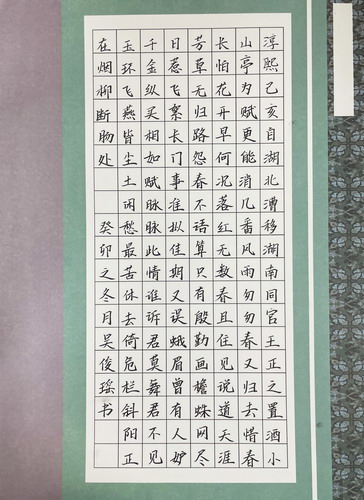 淳熙己亥自湖北漕移湖南同官王正之置酒小
山亭为赋更能消几番风雨匆匆春又归去惜春
长怕花开早何况落红无数春且住见说道天涯
芳草无归路怨春不语算只有殷勤画檐蛛网尽
日惹飞絮长门事准拟佳期又误蛾眉曾有人妒
千金纵买相如赋脉脉此情谁诉君莫舞君不见
玉环飞燕皆尘土闲愁最苦休去倚危栏斜阳正
在烟柳断肠处 癸卯之冬月吴俊瑶书